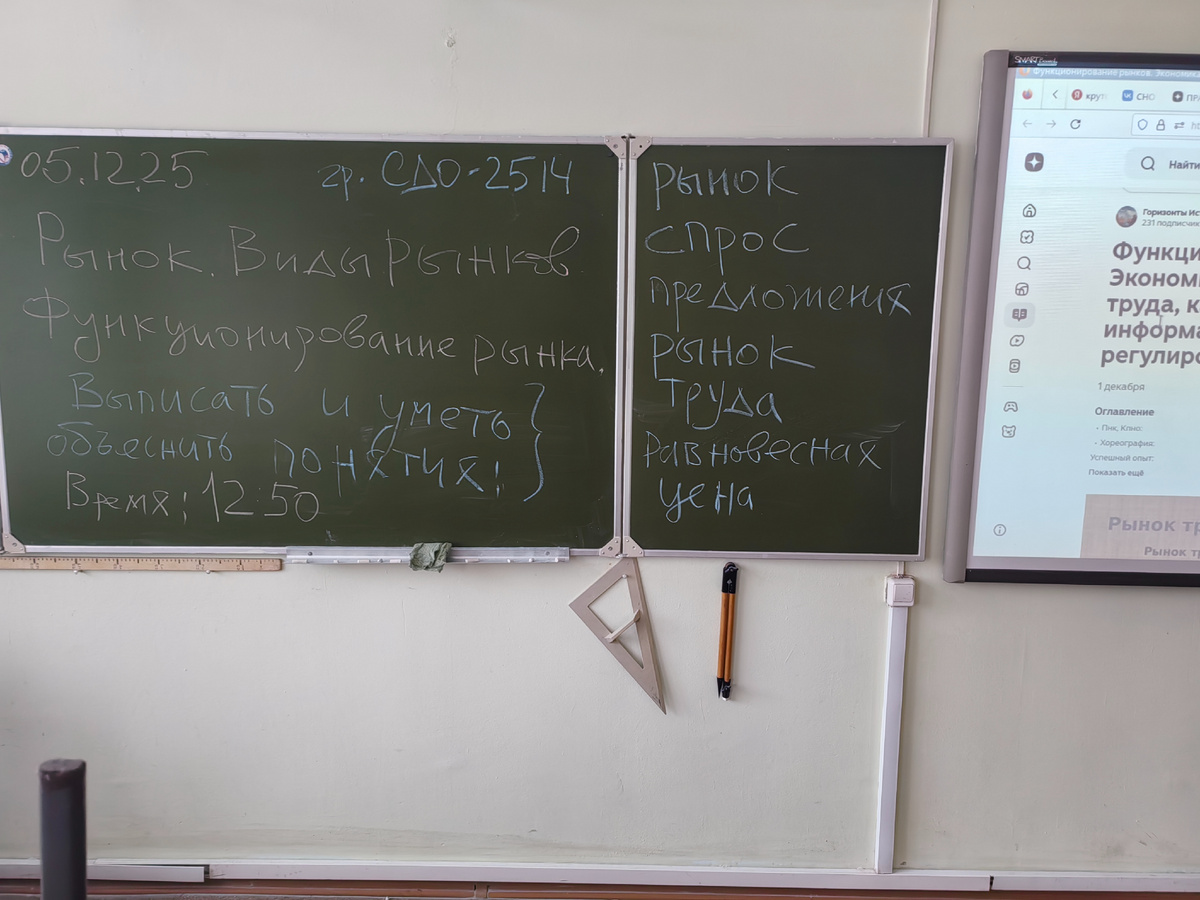 05.12.25 гр. СДО-2514
Рынок. Виды рынков
Функционирование рынка.
Выписать и уметь
объеснить понятия!
Время: 12:50
рынок
спрос
предложения
рынок
труда
равновесная
цена
SMART Board
Функционирование рынков. Экономика
крут
СНО
Найти
Горизонты Ис
231 подписчик
Функци
Эконом
труда, к
информа
регулиро
1 декабря
Оглавление
- Пнк, Кпмо:
- Хореография:
Успешный опыт:
Показать ещё
Рынок тр
Рынок т